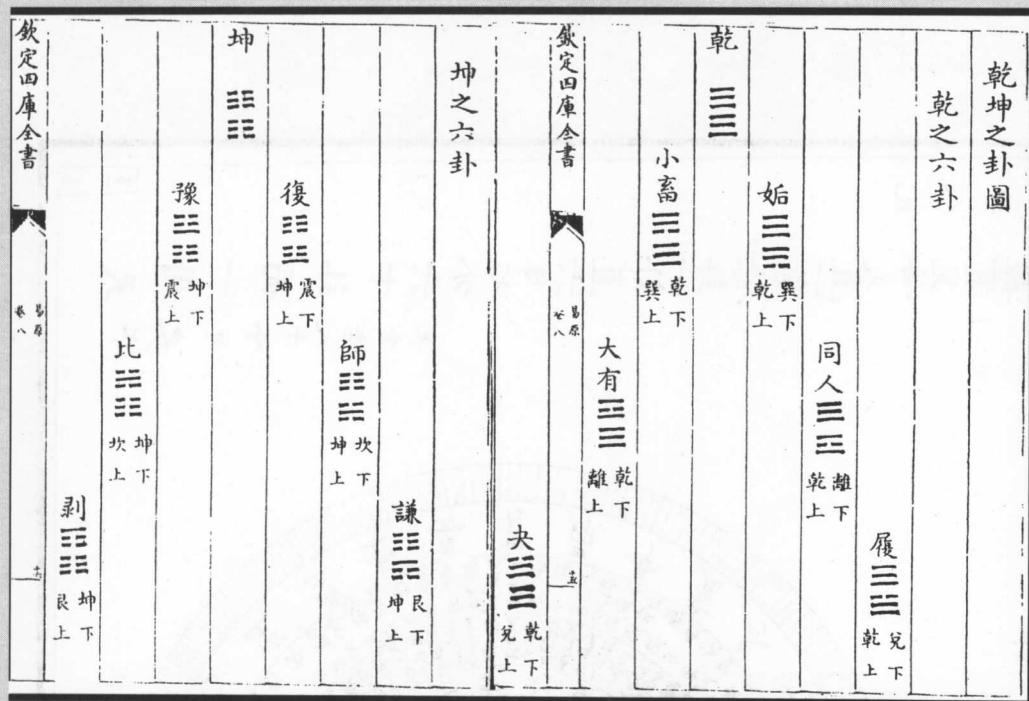 乾坤之卦圖
乾之六卦
履 兌下
乾上
同人 離下
乾上
姤 巽下
乾上
乾
小畜 乾下
巽上
大有 乾下
離上
欽定四庫全書
易原
卷八
夬 乾下
兌上
坤之六卦
謙 艮下
坤上
師 坎下
坤上
復 震下
坤上
坤
豫 坤下
震上
比 坤下
坎上
剥 坤下
艮上
欽定四庫全書
易原
卷八